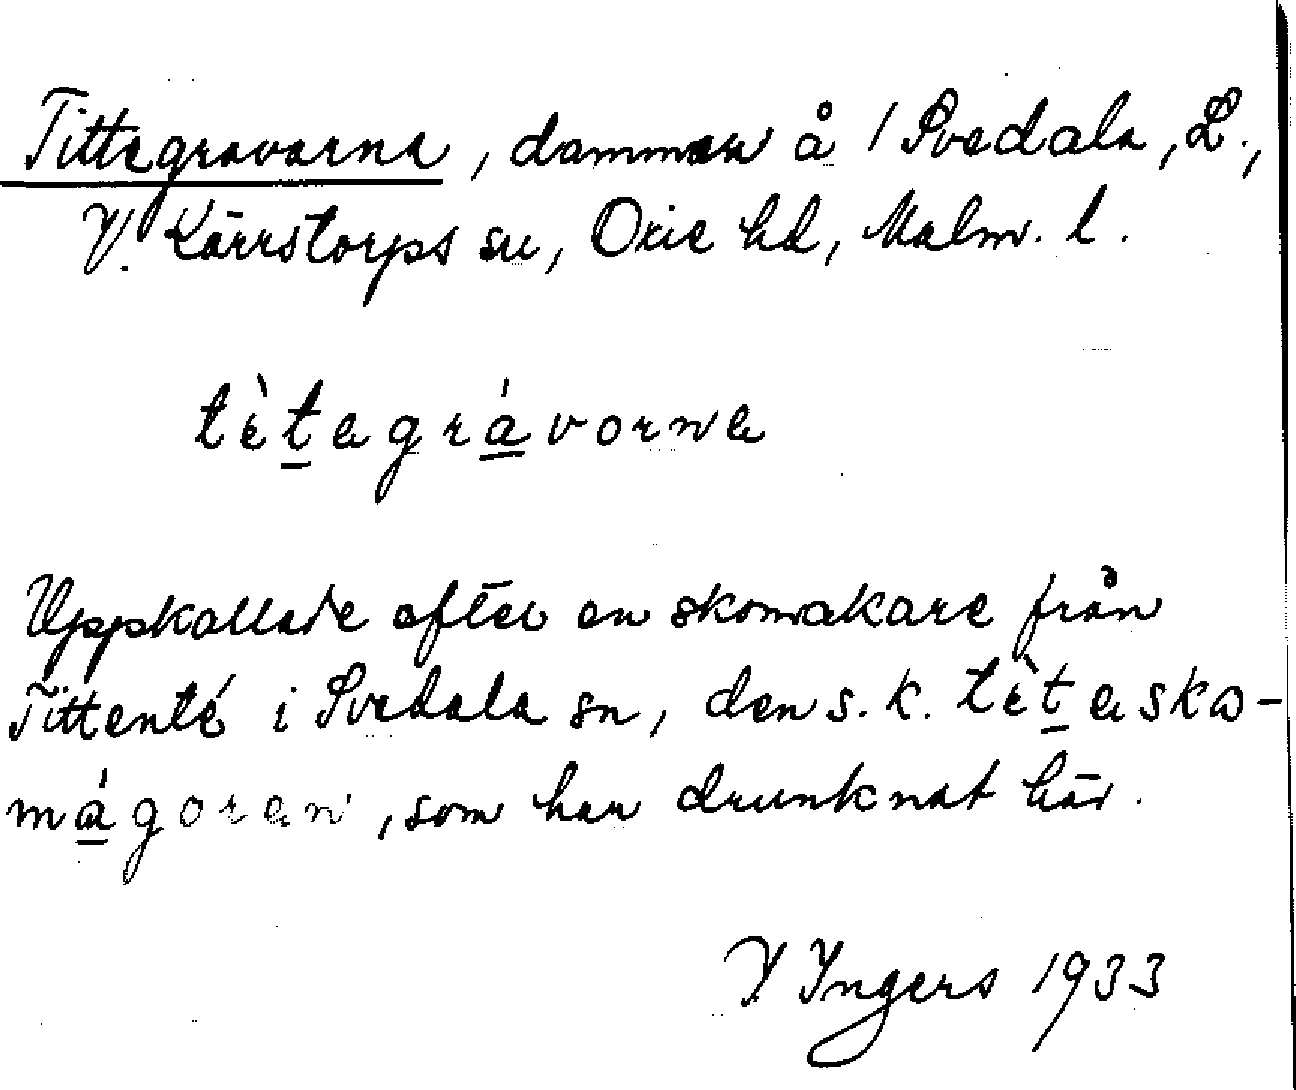 Tittegravarna, dammar å 1 Svedala, L.,
V. Kärrstorps sn, Oxie hd, Malm. l.
tètagrávorna
Uppkallade efter en skomakare från
Tittenté i Svedala sn, den s.k. tètasko-
mágoren, som har drunknat här.
Ingers 1933